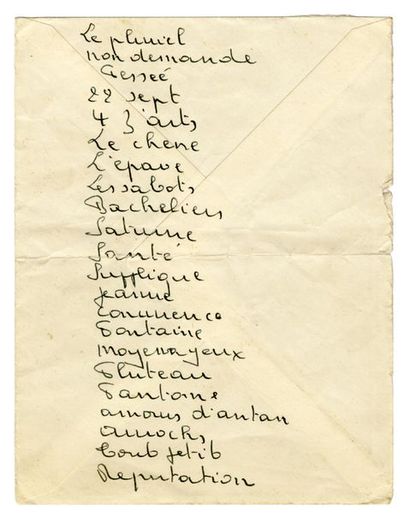 Le pluriel
non demande
Fessée
22 sept
4 z'arts
Le chene
L'épave
Les sabots
Bacheliers
Saturne
Santé
Supplique
Jeanne
Commence
Fontaine
moyenageux
Pluteau
Fantome
amours d'antan
Amochs
Comb petib
Reputation